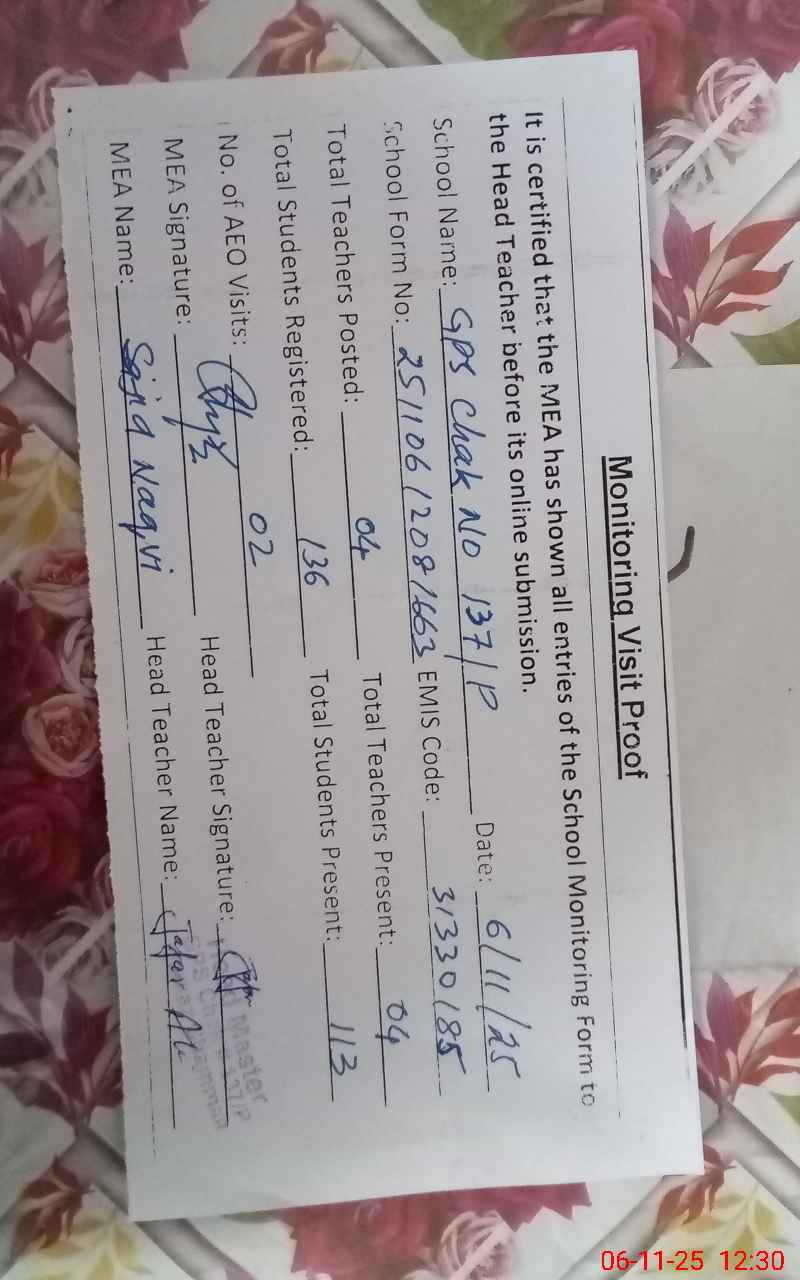 Monitoring Visit Proof
It is certified that the MEA has shown all entries of the School Monitoring Form to
the Head Teacher before its online submission.
School Name: GPS Chak NO 137/P Date: 6/11/25
School Form No: 25110612081663 EMIS Code: 31330185
Total Teachers Posted: 04 Total Teachers Present: 04
Total Students Registered: 136 Total Students Present: 113
No. of AEO Visits: 02
MEA Signature: Head Teacher Signature:
MEA Name: Sajid Naqvi Head Teacher Name: Jafar Ali
Master
137/P
06-11-25 12:30